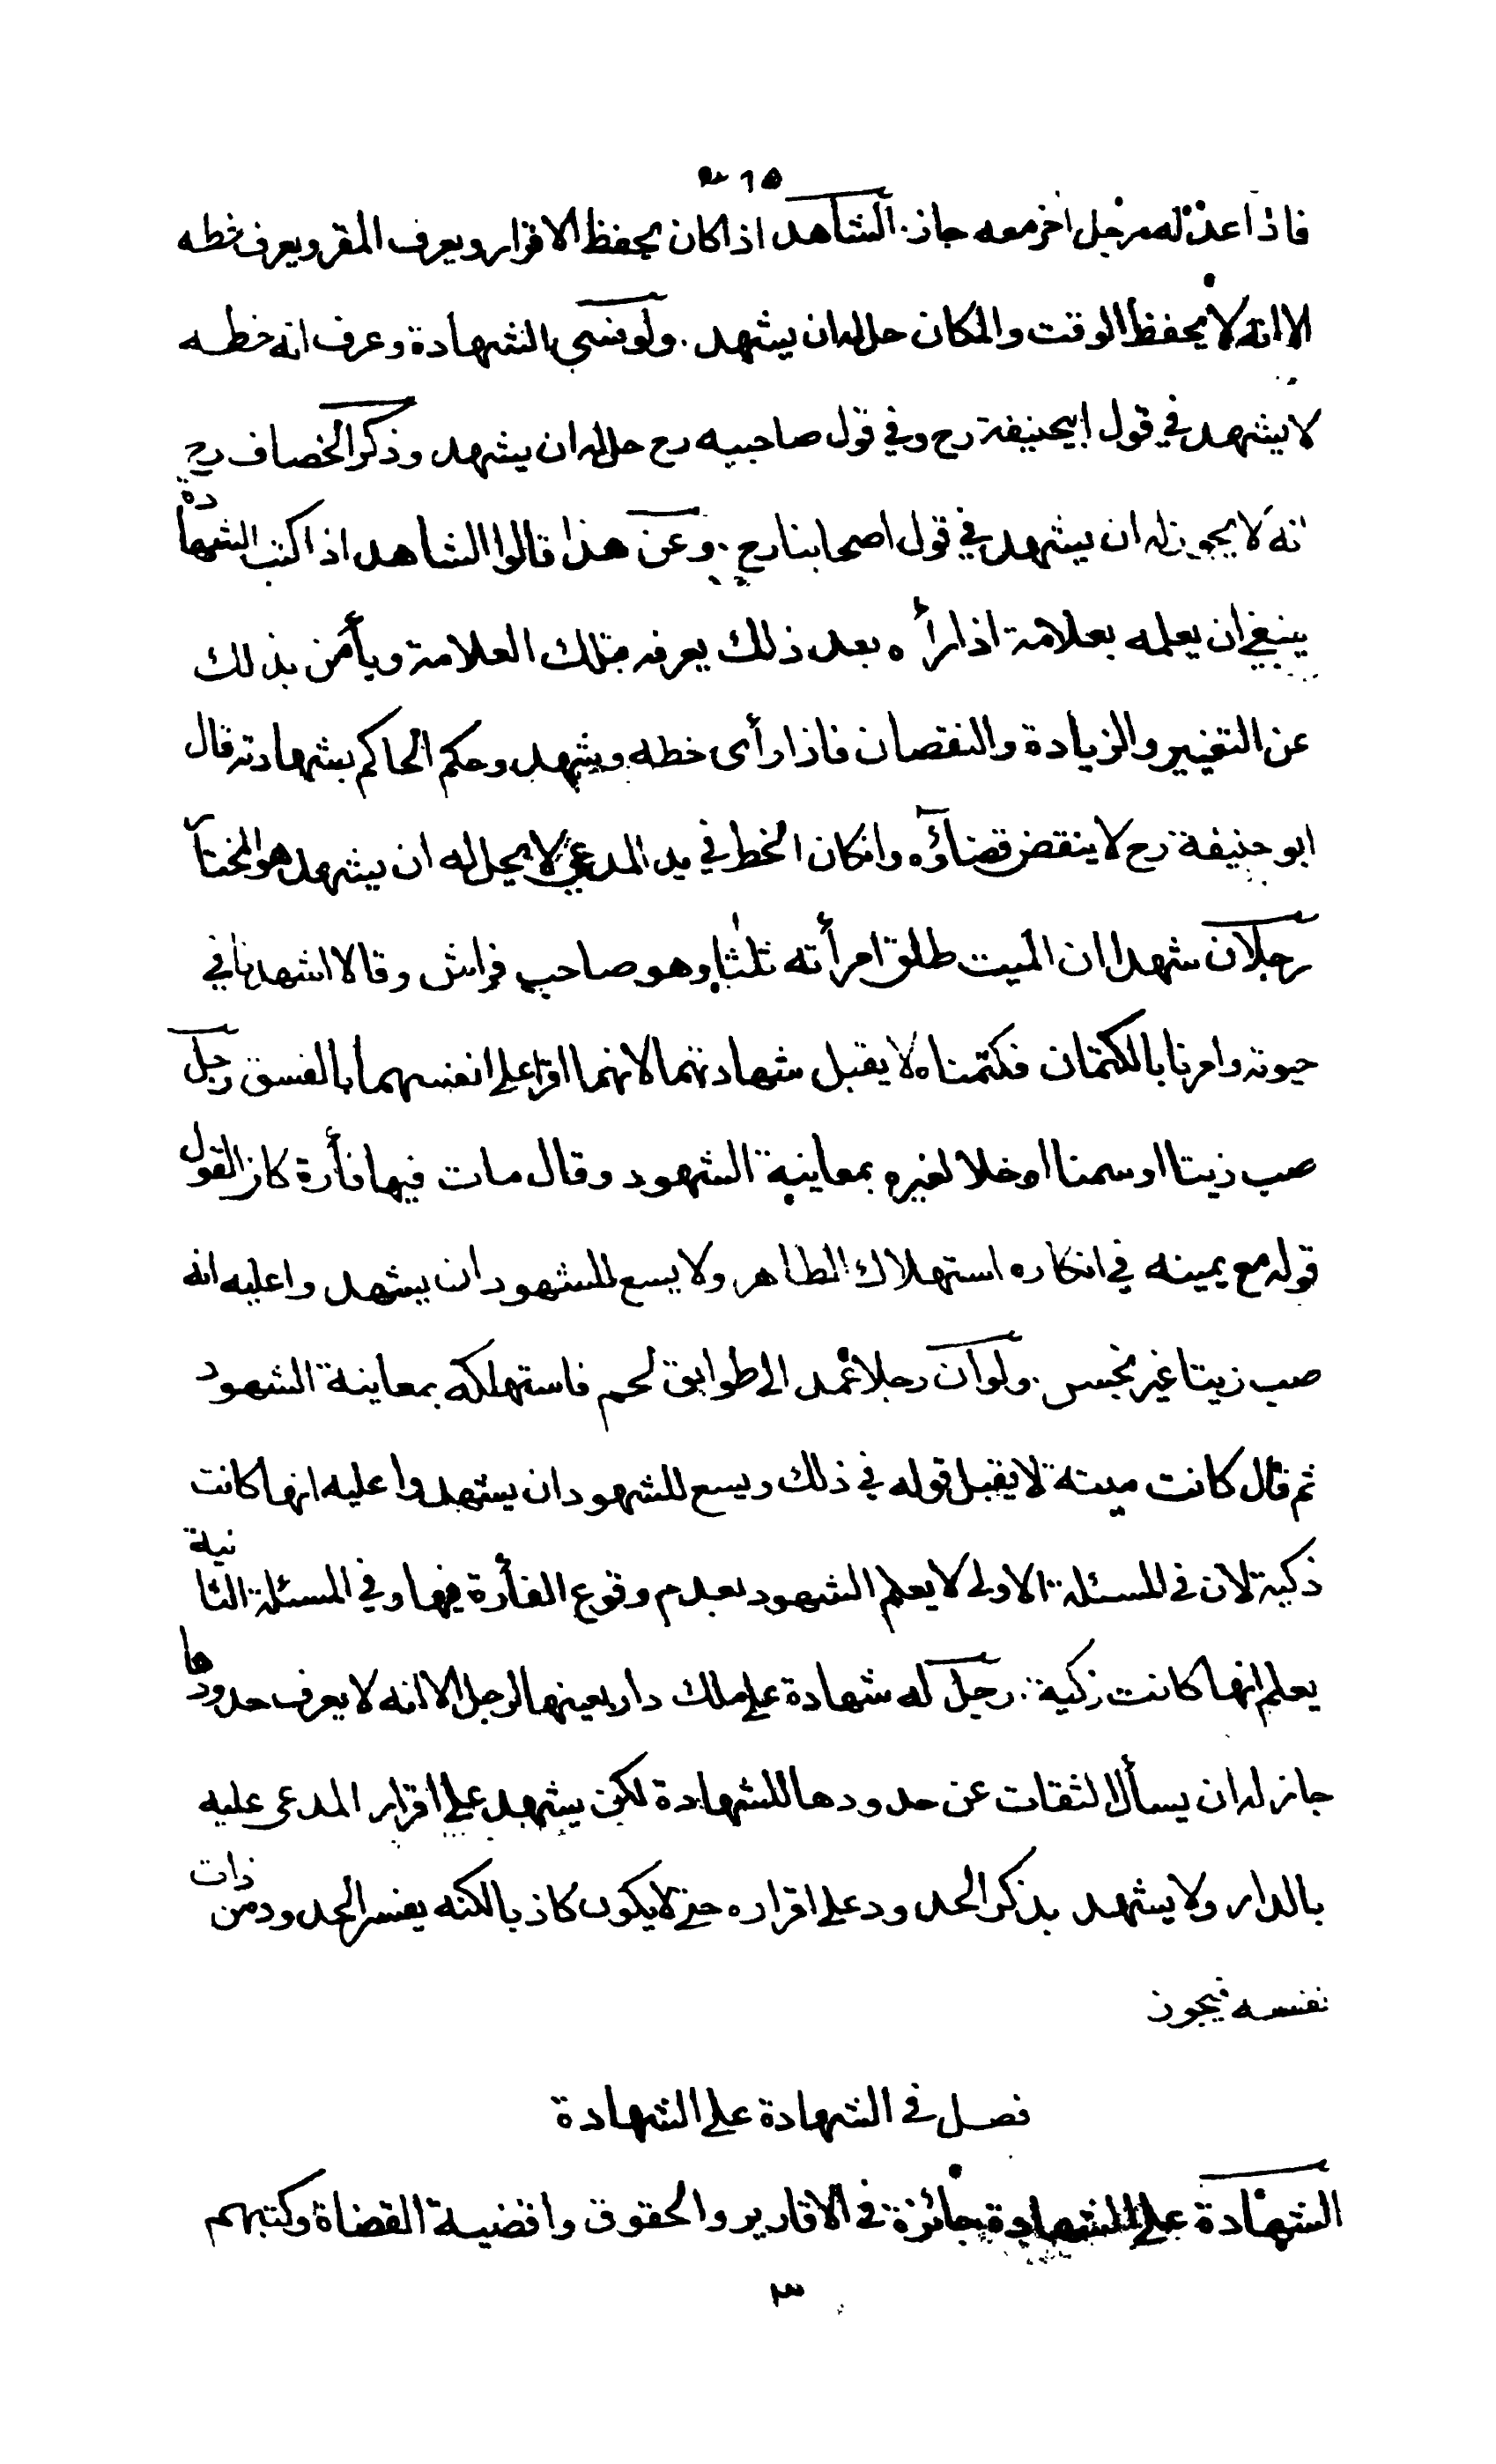 ٦٥
فاذا عدله رجل اخر معه جاز . الشاهد اذا كان يحفظ الاقرار ويعرف المقر ويعرف خطه
الا انه لا يحفظ الوقت والمكان حل له ان يشهد . ولو نسي الشهادة وعرف انه خطه
لا يشهد في قول ابيحنيفة رح وفي قول صاحبيه رح حل له ان يشهد وذكر الخصاف رح
انه لا يجوز له ان يشهد في قول اصحابنا رح . وعن هذا قالوا الشاهد اذا كتب الشهادة
ينبغي ان يعلمه بعلامة اذا رأه بعد ذلك يعرفه بتلك العلامة ويأمن بذلك
عن التغيير والزيادة والنقصان فاذا رأى خطه ويشهد وحكم الحاكم بشهادته قال
ابو حنيفة رح لا ينقض قضاؤه وانكان الخط في يد المدعي لا يحل له ان يشهد هو المختار
رجلان شهدا ان الميت طلق امرأته ثلثا وهو صاحب فراش وقالا اشهدنا في
حيوته وامرنا بالكتمان فكتمناه لا يقبل شهادتهما لانهما اقرا على انفسهما بالفسق رجل
صب زيتا او سمنا او خلا لغيره بمعاينة الشهود وقال مات فيها فأرة كان القول
قوله مع يمينه في انكاره استهلاك الطاهر ولا يسع للشهود ان يشهد وا عليه انه
صب زيتا غير نجس . ولو ان رجلا عمد الى طوابق لحم فاستهلكه بمعاينة الشهود
ثم قال كانت ميتة لا يقبل قوله في ذلك ويسع للشهود ان يشهدوا عليه انها كانت
ذكية لان في المسئلة الاولى لا يعلم الشهود بعدم وقوع الفأرة فيها وفي المسئلة الثانية
يعلم انها كانت زكية . رجل له شهادة على ملك دار بعينها لرجل الا انه لا يعرف حدودها
جاز له ان يسأل الثقات عن حدودها للشهادة لكن يشهد على اقرار المدعى عليه
بالدار ولا يشهد بذكر الحدود على اقراره حتى لا يكون كاذبا لكنه يفسر الحدود من ذات
نفسه فيجوز
فصل في الشهادة على الشهادة
الشهادة على الشهادة جائزة في الاقارير والحقوق واقضية القضاة وكتبهم
٣